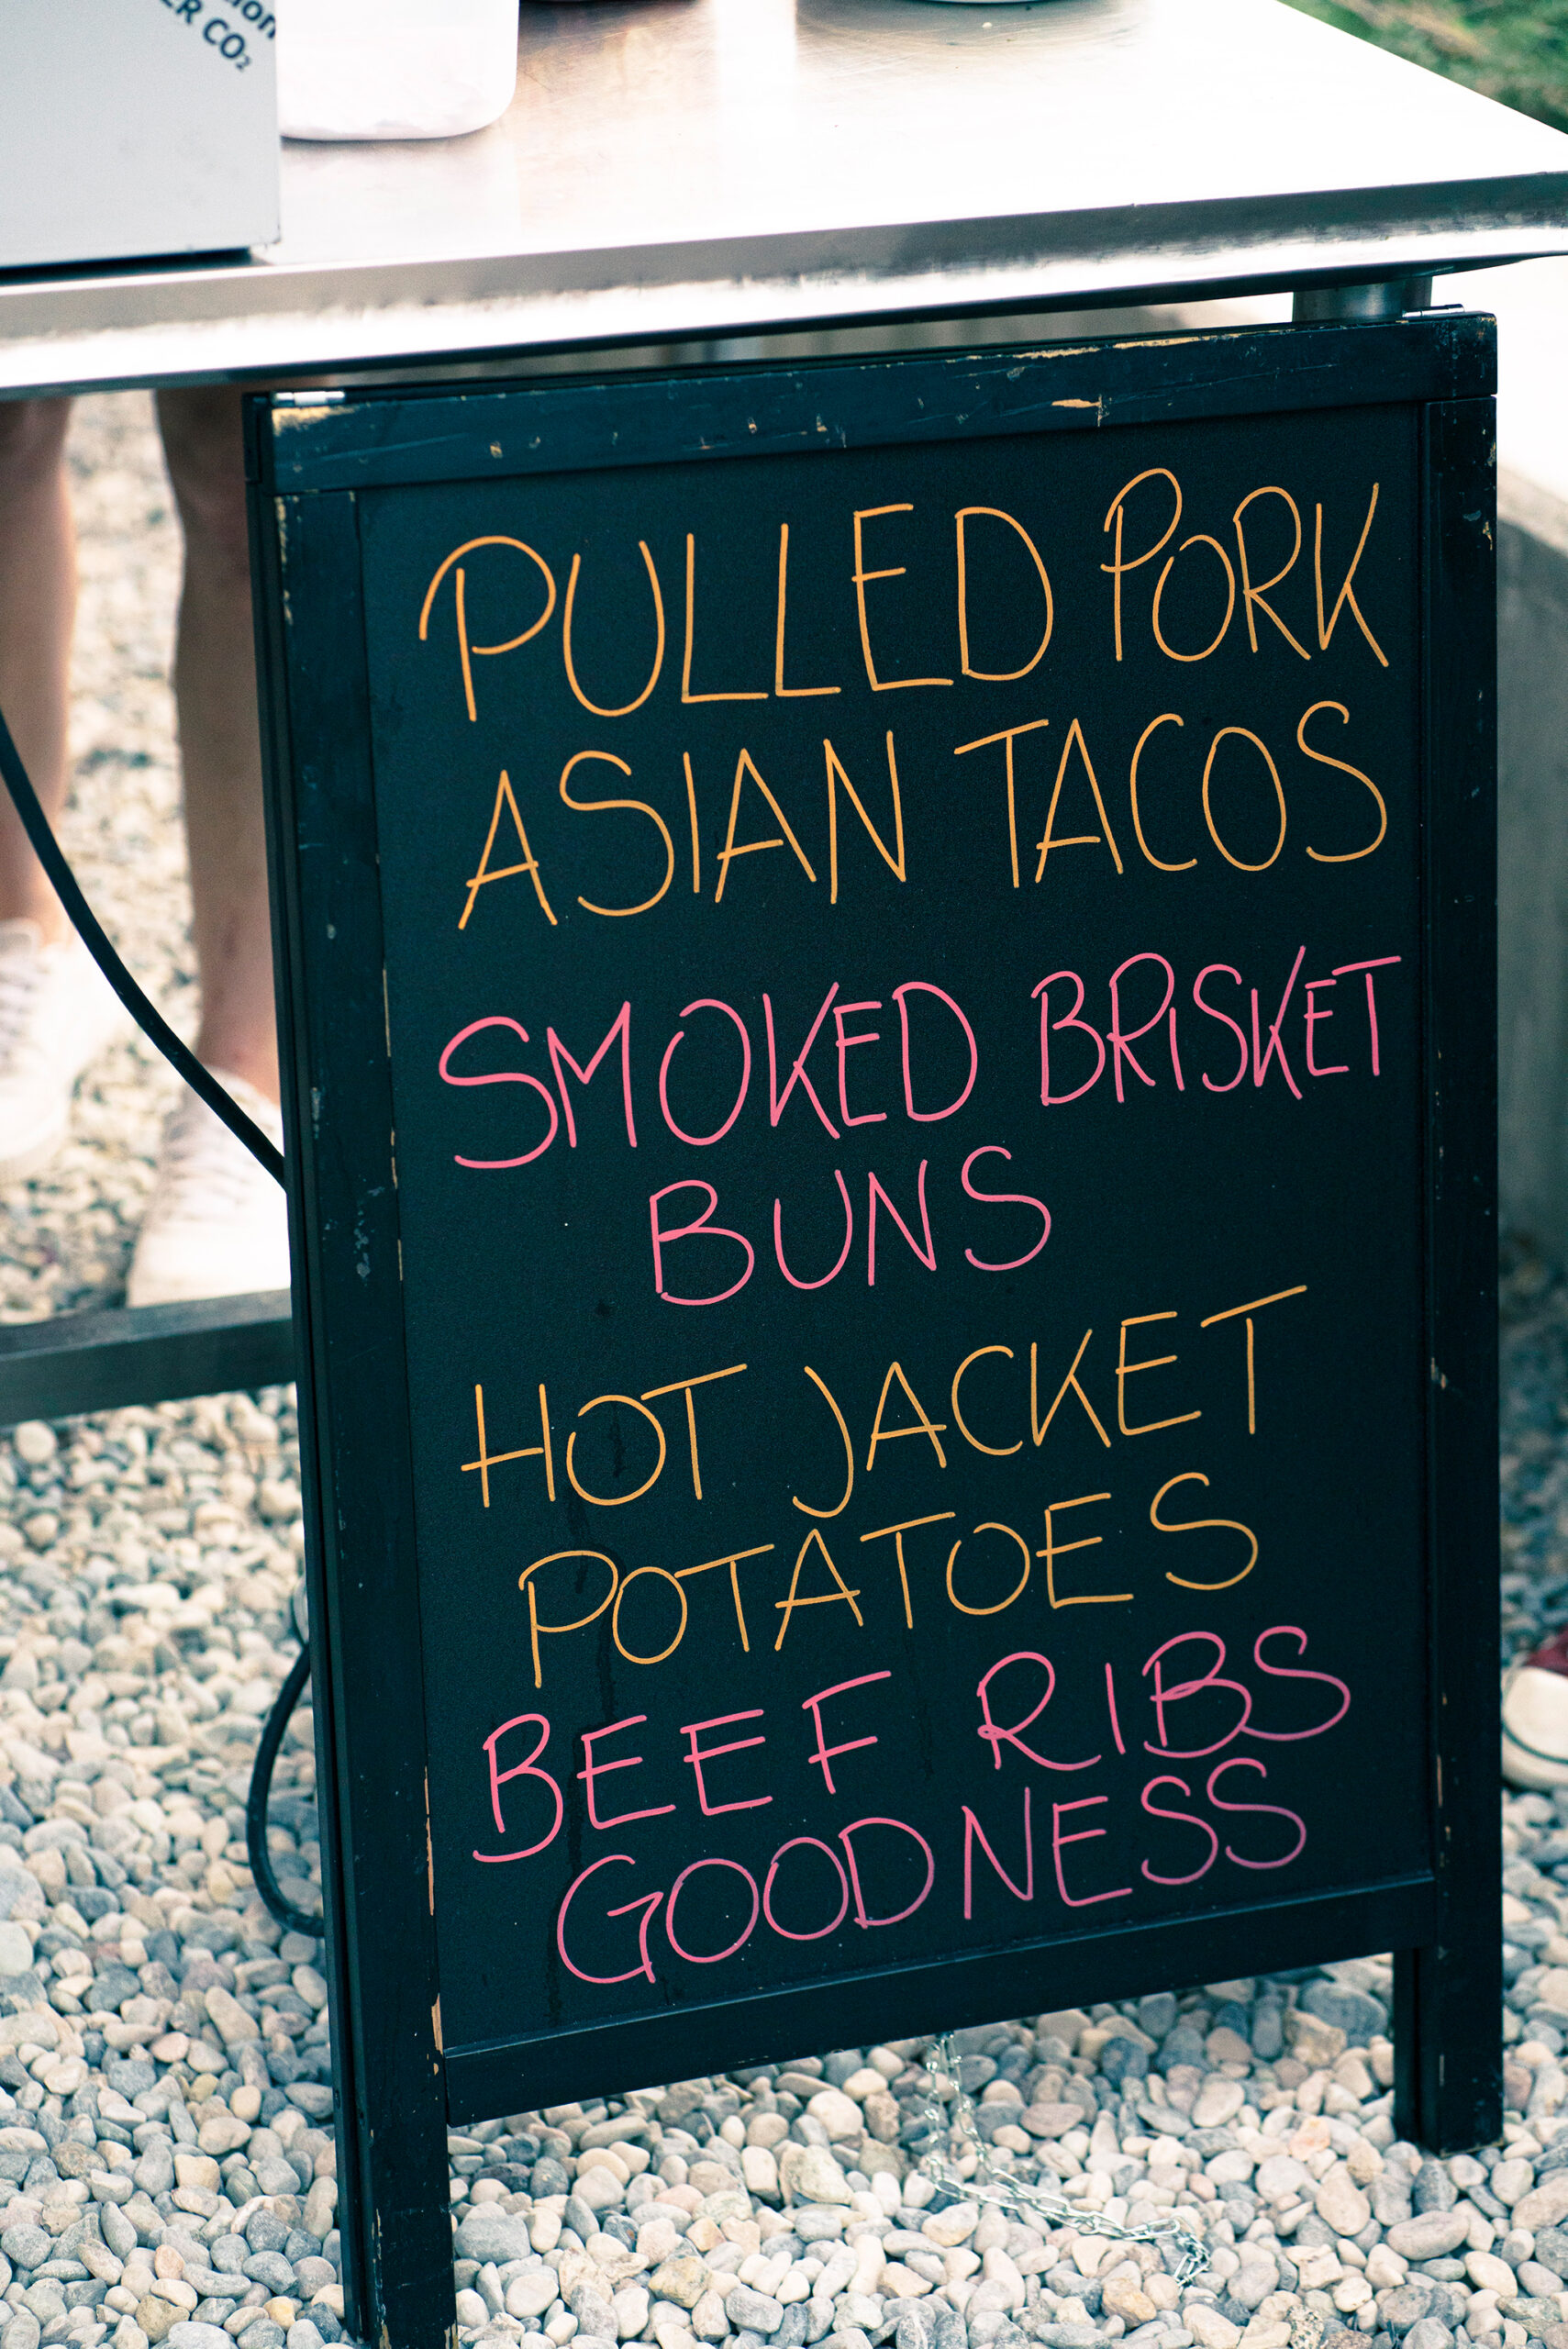 CO₂
PULLED PORK
ASIAN TACOS
SMOKED BRISKET
BUNS
HOT JACKET
POTATOES
BEEF RIBS
GOODNESS